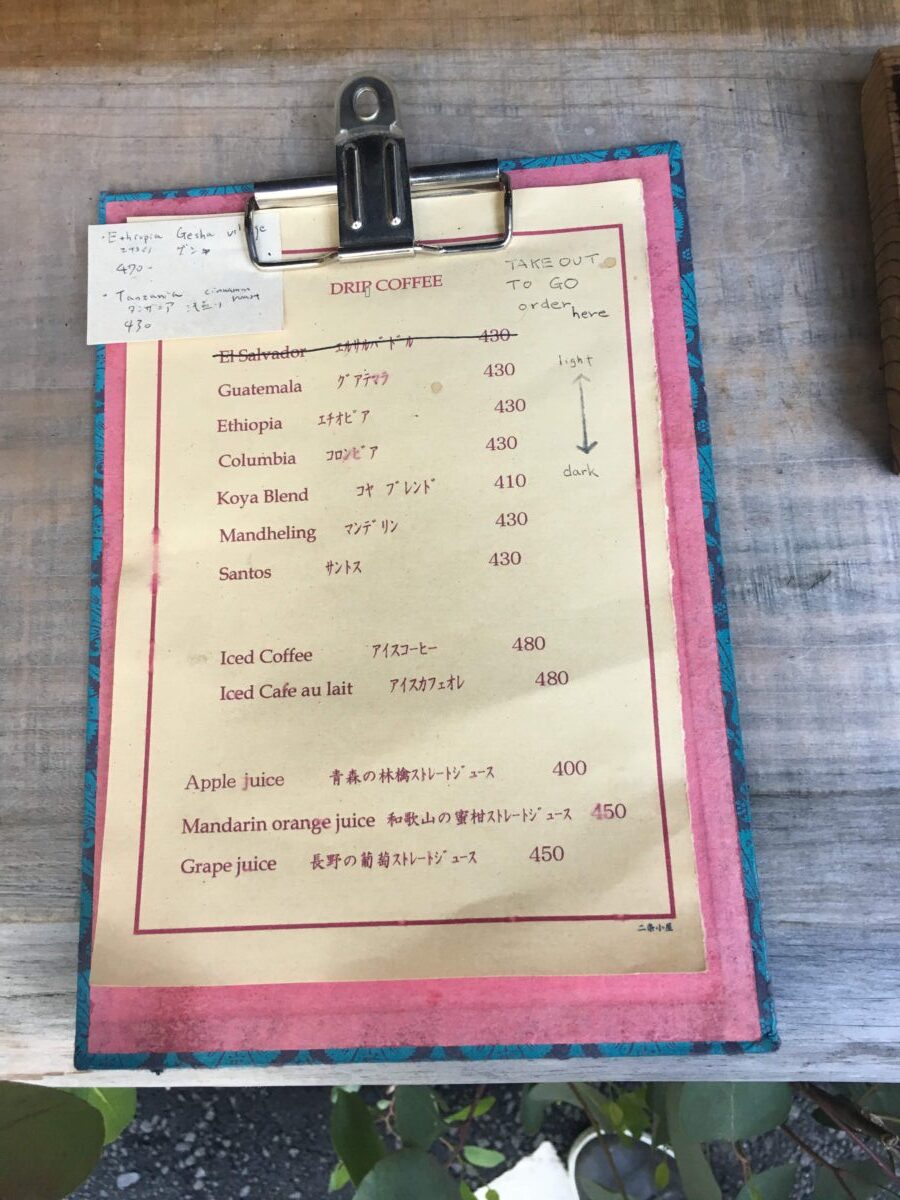 ・Ethiopia Gesha village
470-
・Tanzania cinnamon roast
タンザニア 浅煎り
430
DRIP COFFEE
TAKE OUT
TO GO
order here
El Salvador エルサルバドル 430
Guatemala グアテマラ 430
Ethiopia エチオピア 430
Columbia コロンビア 430
Koya Blend コヤ ブレンド 410
Mandheling マンデリン 430
Santos サントス 430
light
dark
Iced Coffee アイスコーヒー 480
Iced Cafe au lait アイスカフェオレ 480
Apple juice 青森の林檎ストレートジュース 400
Mandarin orange juice 和歌山の蜜柑ストレートジュース 450
Grape juice 長野の葡萄ストレートジュース 450
二条小屋